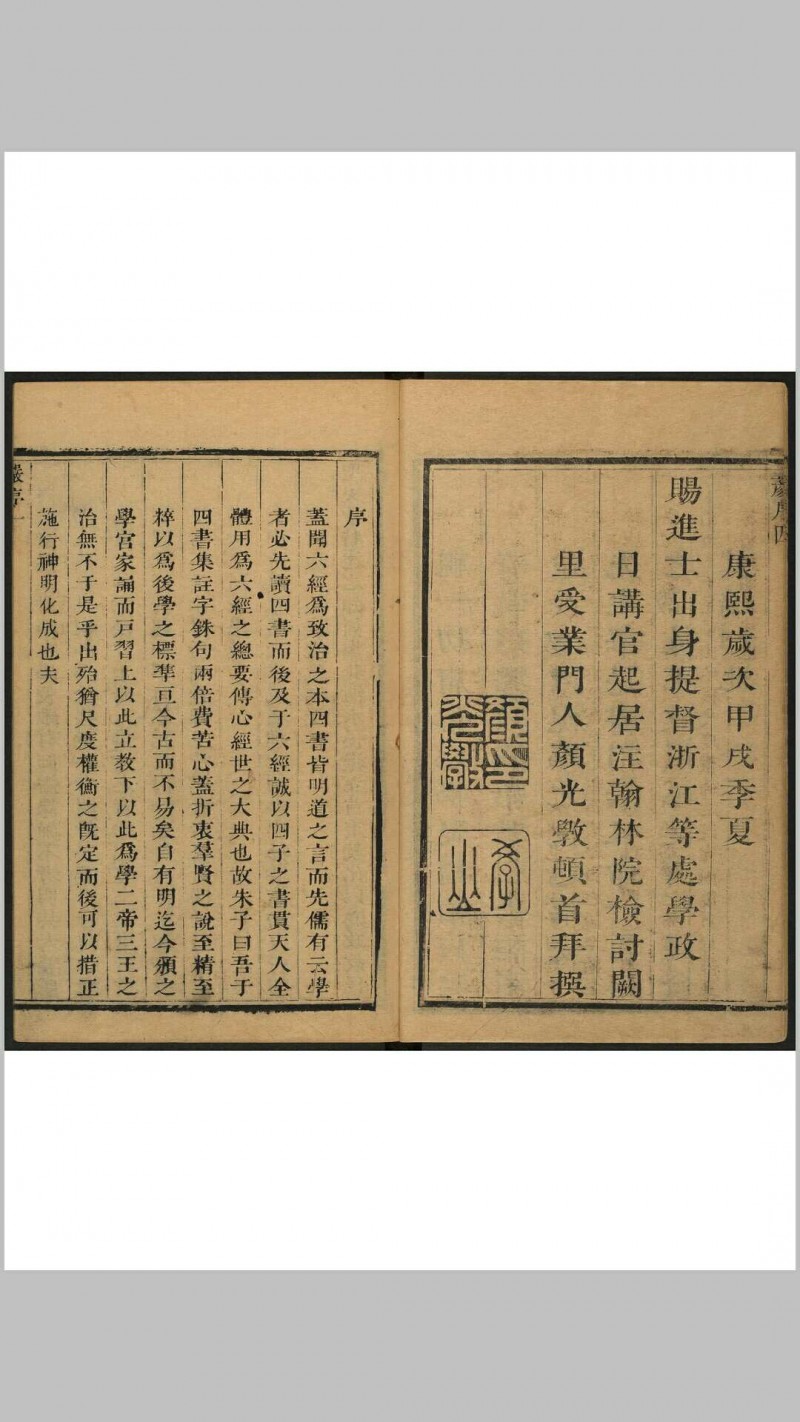 序四
康熙歲次甲戌季夏
賜進士出身提督浙江等處學政
日講官起居注翰林院檢討闕
里受業門人顏光斆頓首拜撰
序
蓋聞六經爲致治之本四書皆明道之言而先儒有云學
者必先讀四書而後及于六經誠以四子之書貫天人全
體用爲六經之總要傳心經世之大典也故朱子曰吾于
四書集註字銖句兩倍費苦心蓋折衷羣賢之說至精至
粹以爲後學之標準亘今古而不易矣自有明迄今頒之
學宮家誦而戸習上以此立教下以此爲學二帝三王之
治無不于是乎出殆猶尺度權衡之旣定而後可以措正
施行神明化成也夫
嚴序一